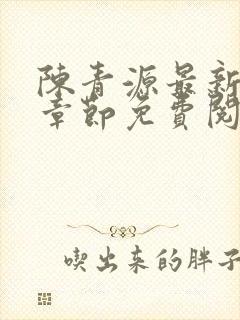 陳青源最新
章節免費閱
喫出来的胖子